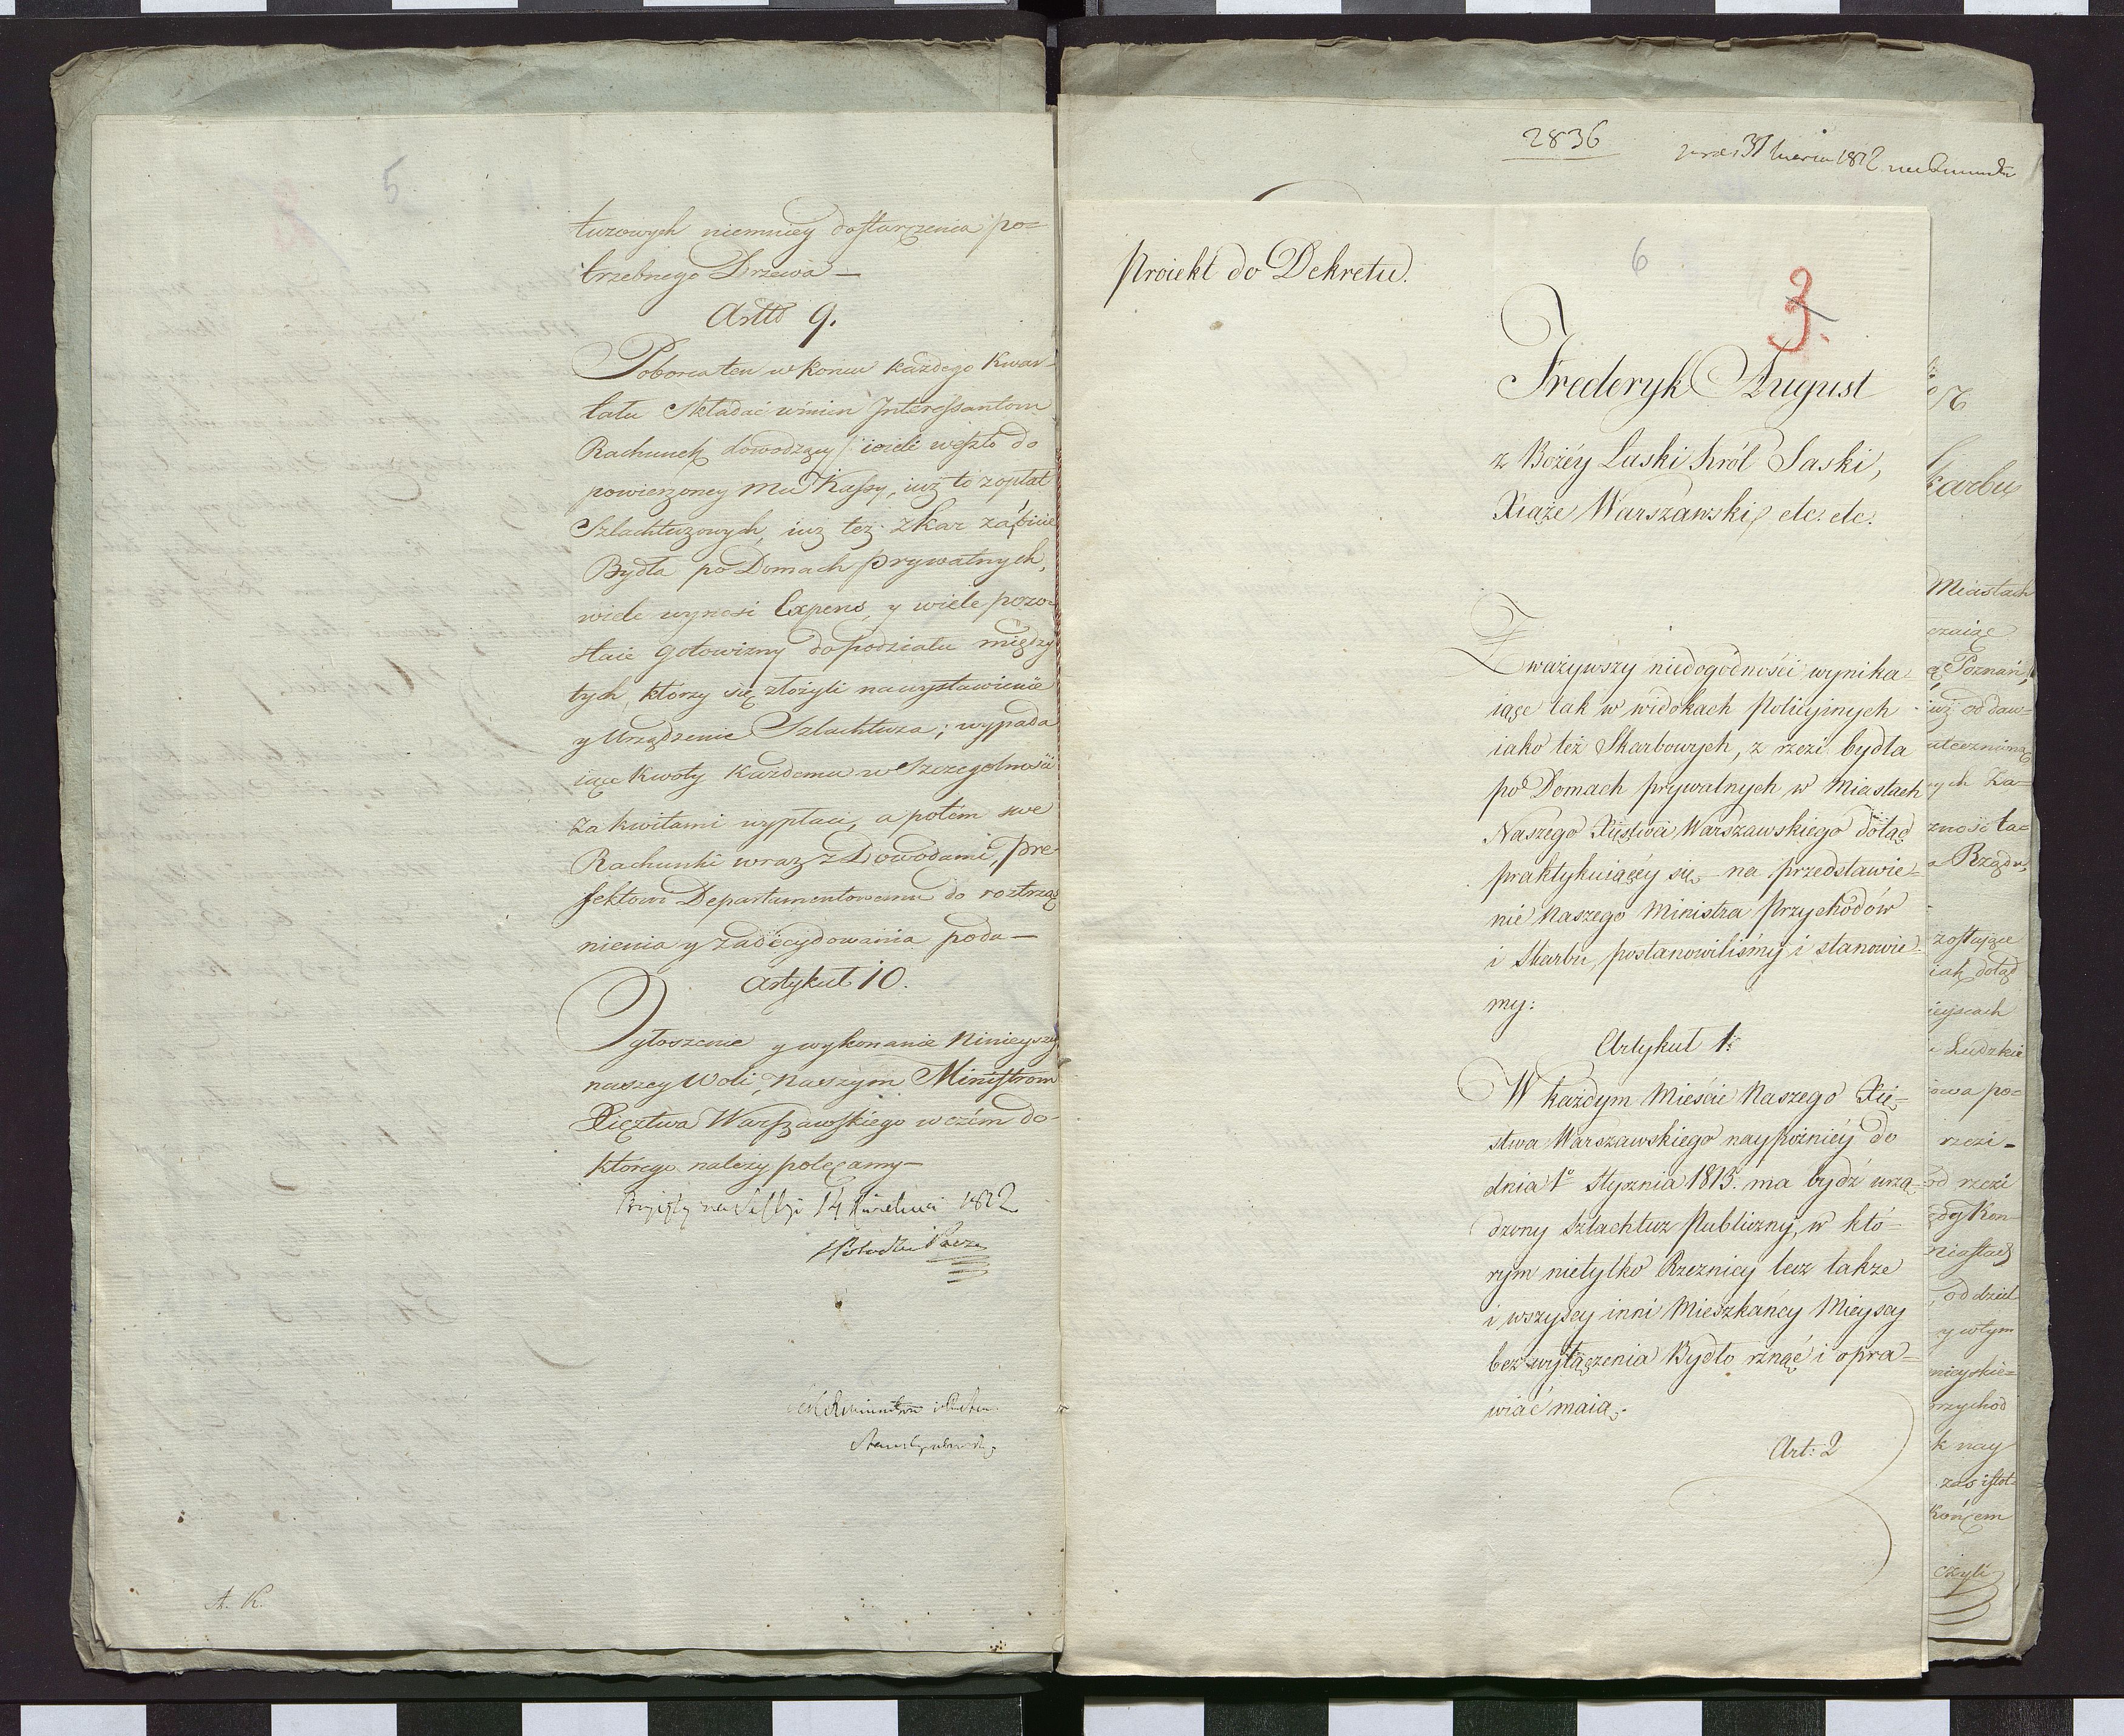 5
tuzowych niemniey dostarczenia po=
trzebnego Drzewa —
Artto 9.
Poborca ten w koncu każdego Kwar-
tału składać winien Interessantom
Rachunek dowodzący iwiele weszło do
powierzoney mu Kassy, iuż to z opłat
Szlachtuzowych, iuż też z kar za bicie
Bydła po Domach prywatnych,
wiele wynosi Expens, y wiele pozo=
staie gotowizny do podziału między
tych, którzy się złożyli na wystawienie
y Urządzenie Szlachtuza; wypada
iące kwoty każdemu w Szczegolności
za kwitami wypłaci, a potem swe
Rachunki wraz z Dowodami, Pre
fektowi Departamentowemu do roztrzą
nienia y zadecydowania poda —
Artykuł 10.
Ogłoszenie y wykonanie Ninieyszey
naszey Woli, Naszym Ministrom
Xięztwa Warszawskiego w czém do-
którego należy polecamy —
Przyięty na Sessyi 14 Kwietnia 1812
A. K.
2836
31 1812
Proiekt do Dekretu.
6
3.
Frederyk August
z Bożéy Łaski Król Saski,
Xiąże Warszawski, etc. etc.
Zważywszy niedogodności wynika
iące tak w widokach Policyinych
iako też Skarbowych, z rzezi bydła
po Domach prywatnych w Miastach
Naszego Xięstwa Warszawskiego dotąd
praktykuiącéy się na przedstawie=
nie Naszego Ministra Przychodów
i Skarbu, postanowiliśmy i stanowie
my:
Artykuł 1.
W każdym Mieście Naszego Xię-
stwa Warszawskiego naypóźniéy do
dnia 1º Stycznia 1813. ma bydź urzą-
dzony Szlachtuz Publiczny, w któ-
rym nietylko Rzeznicy lecz także
i wszyscy inni Mieszkańcy Mieyscy
bez wyłączenia Bydło rznąć i opra=
wiać maią.
Art: 2
karbu
Miastach
Poznań,
iuż od daw=
ych Za=
zność ta=
Rządu,
zostające
iak dotąd
ieyscach
i Ludzkie
owa po=
rzezi-
od rzezi
Kon-
miastach
od dzieł
y w tym
mieyskie=
rzychod
k nay
zas istot=
końcem